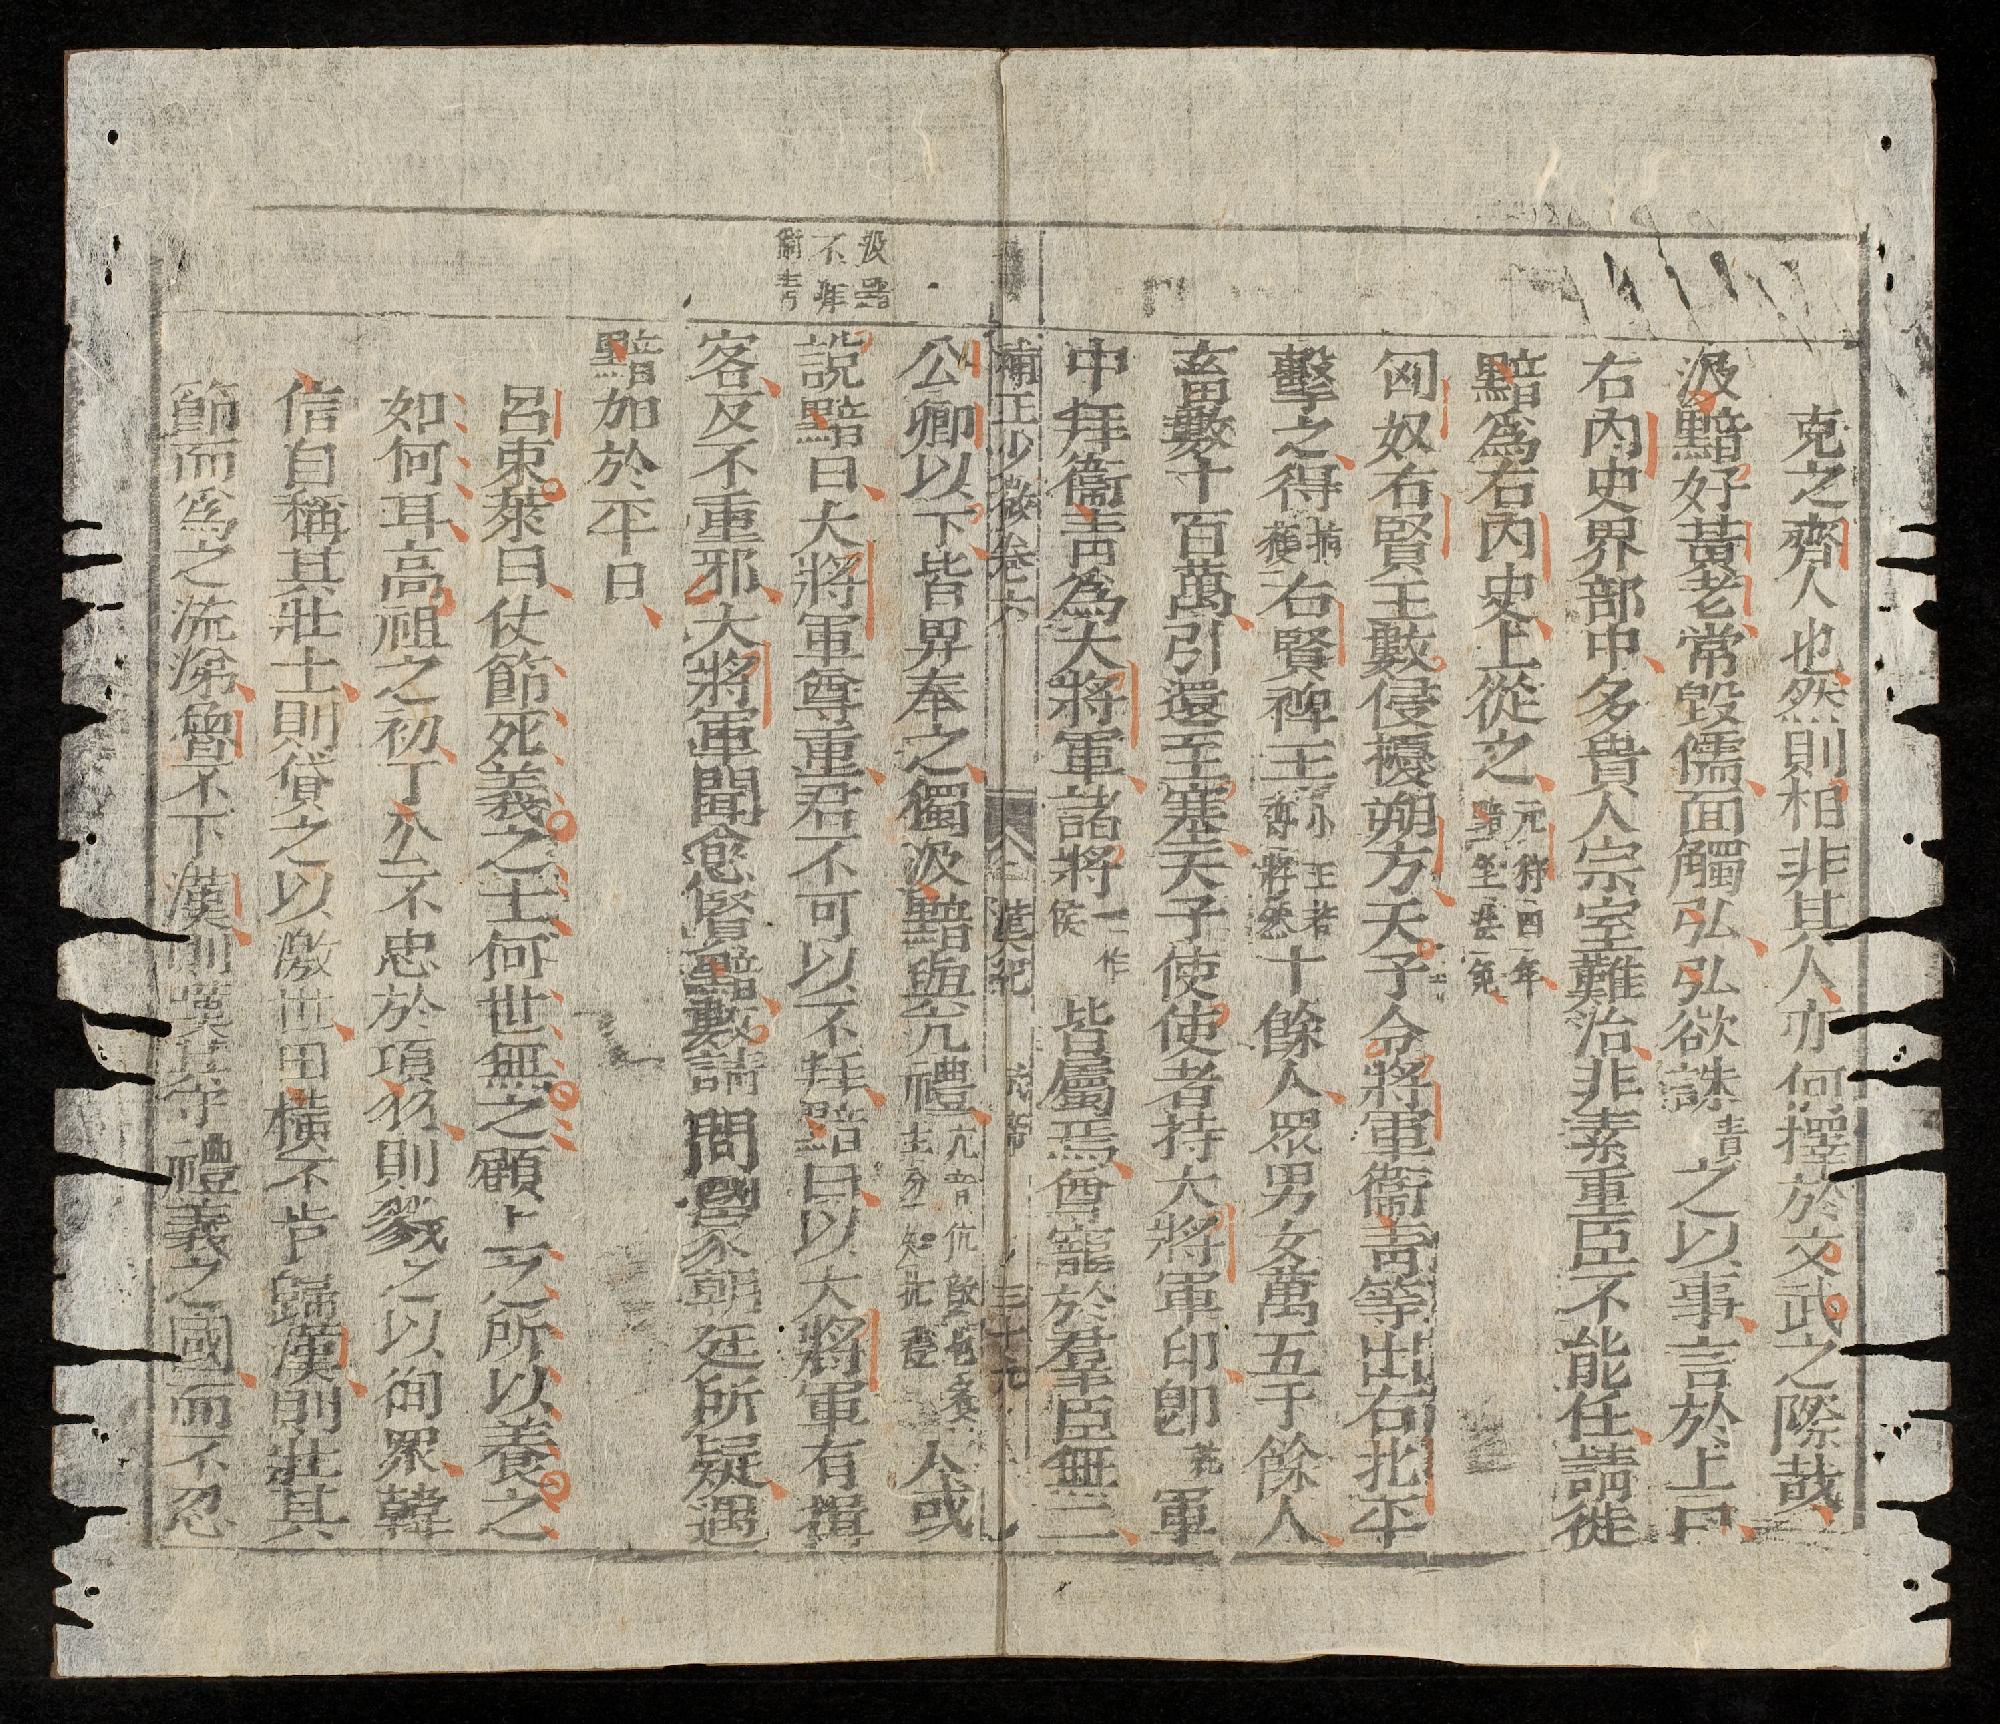 克之齊人也然則相非其人亦何擇於文武之際哉
汲黯好黃老常毀儒面觸弘弘欲誅責之以事言於上曰
右內史界部中多貴人宗室難治非素重臣不能任請徙
黯爲右內史上從之
匈奴右賢王數侵擾朔方天子令將軍衞靑等出右北平
擊之得右賢裨王小王若裨將然十餘人眾男女萬五千餘人
畜數十百萬引還至塞天子使使者持大將軍印卽軍
中拜衞靑爲大將軍諸將一作侯皆屬焉尊寵於羣臣無二
補正少微卷六 漢紀 武帝 三十九
汲黯不拜衞青
公卿以下皆畀奉之獨汲黯與亢禮人或
說黯曰大將軍尊重君不可以不拜黯曰以大將軍有揖
客反不重邪大將軍聞愈賢黯數請問國家朝廷所疑遇
黯加於平日
呂東萊曰仗節死義之士何世無之顧上之所以養之
如何耳高祖之初丁公不忠於項羽則戮之以徇眾韓
信自稱其壯士則貸之以激世田橫不肯歸漢則壯其
節而爲之流涕魯不下漢則嘆其守禮義之國而不忍